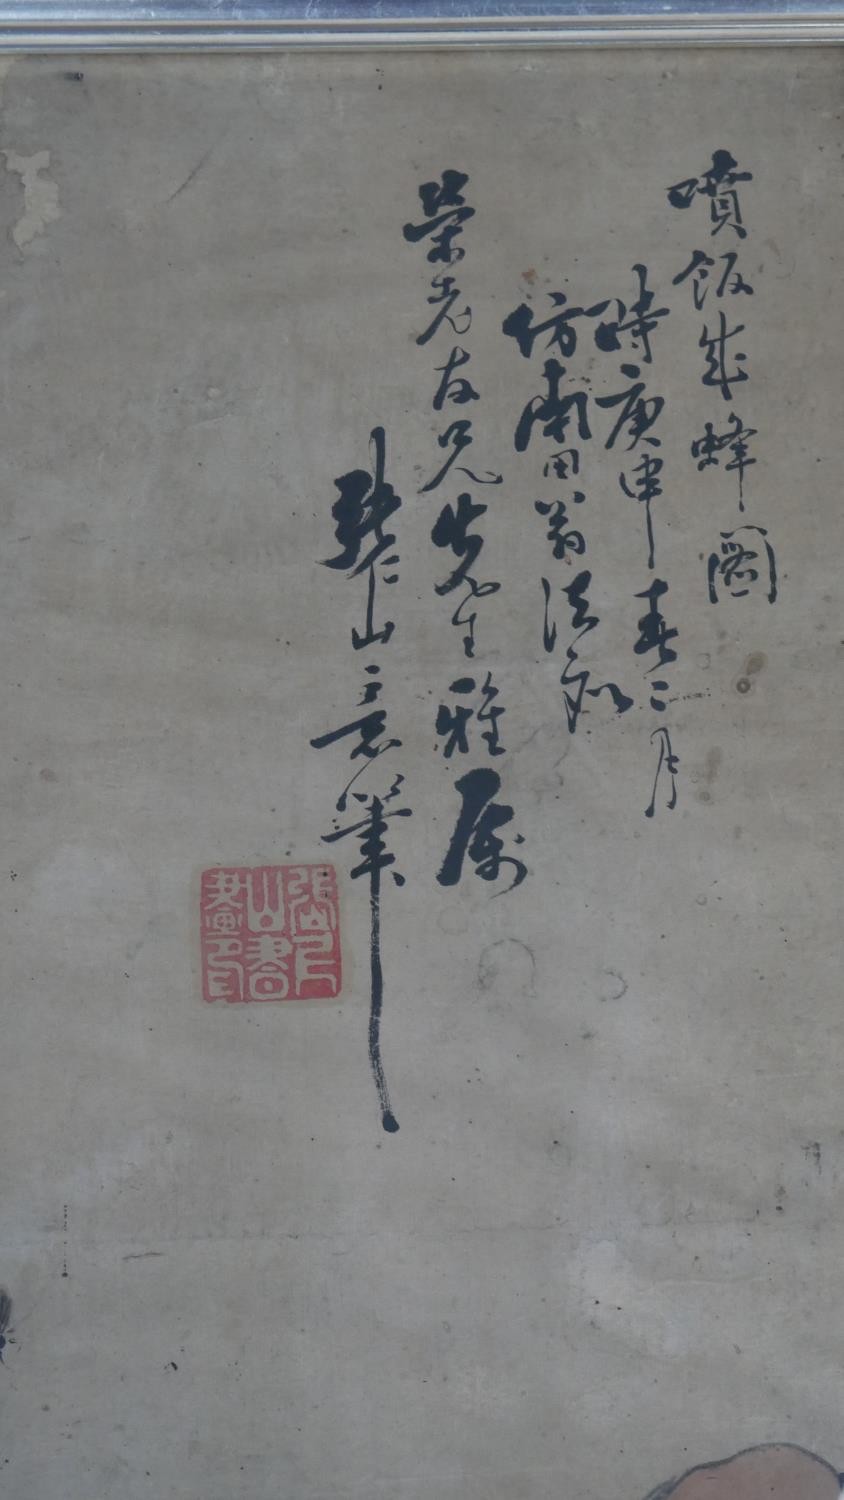 噴飯成蜂圖
時庚申春二月
仿南田翁法
榮老友兄先生雅屬
張仁山意筆
張仁山書畫印